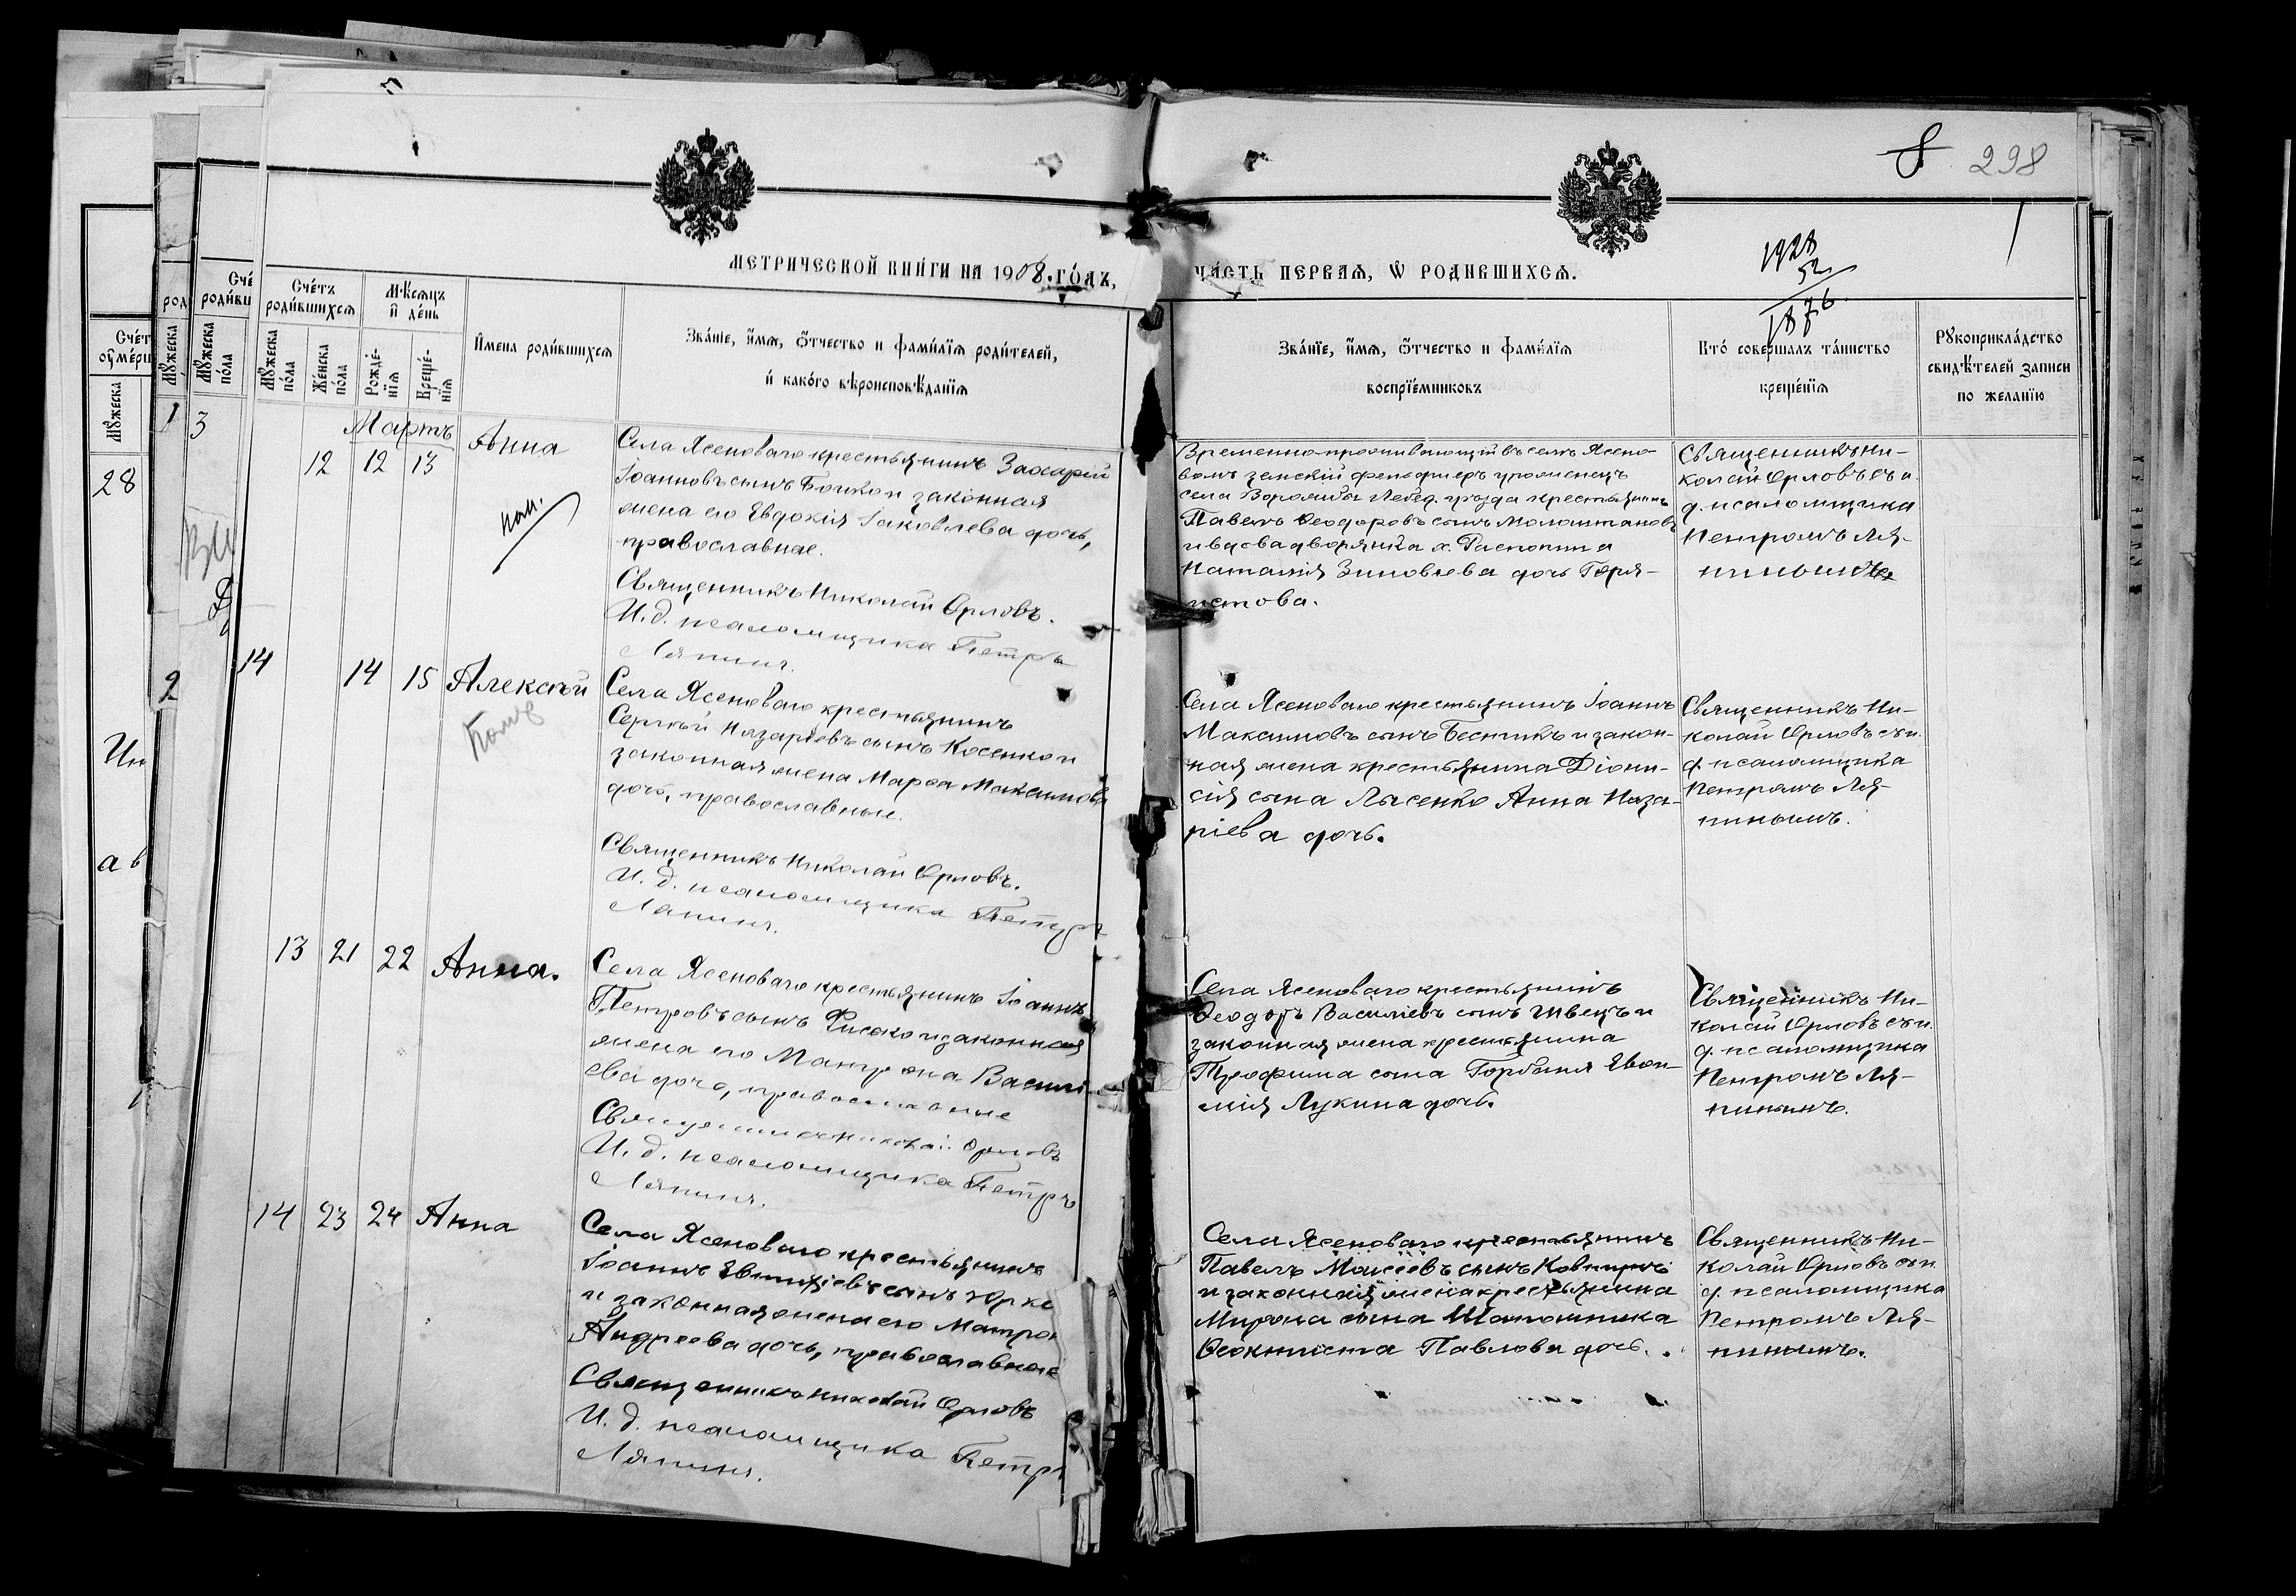 8 298
МЕТРИЧЕСКОЙ КНИГИ НА 1908 ГОДЪ,
ЧАСТЬ ПЕРВАЯ, Ѡ РОДИВШИХСЯ.
1928
52
1876
Счетъ родившихся
Мѣсяцъ и день
Мужеска пола
Женска пола
Рожденія
Крещенія
Имена родившихся
Званіе, имя, отчество и фамилія родителей,
и какого вѣроисповѣданія
Званіе, имя, отчество и фамилія
воспріемниковъ
Кто совершалъ таинство
крещенія
Рукоприкладство
свидѣтелей записи
по желанію
Мартъ
12 12 13 Анна
Села Ясеноваго крестьянинъ Захарій
Іоанновъ сынъ Бойко и законная
жена его Евдокія Іаковлева дочь,
православные.
Священникъ Николай Орловъ.
И. д. псаломщика Петръ
Ляпинъ.
Временно-проживающій въ селѣ Ясено-
вомъ земскій фельдшеръ уроженецъ
села Ворожбы Лебед. уѣзда крестьянинъ
Павелъ Ѳеодоровъ сынъ
и вдова дворянка х. Распопина
Наталія Зиновьева дочь
Священникъ Ни-
колай Орловъ съ и.
д. псаломщика
Петромъ Ля-
пинымъ
14 14 15 Алексѣй
Села Ясеноваго крестьянинъ
Сергѣй Назаріевъ сынъ Косенко и
законная жена Марѳа Максимова
дочь, православные.
Священникъ Николай Орловъ.
И. д. псаломщика Петръ
Ляпинъ.
Села Ясеноваго крестьянинъ Іоаннъ
Максимовъ сынъ и закон-
ная жена крестьянина Діони-
сія сына Лысенко Анна Наза-
ріева дочь.
Священникъ Ни-
колай Орловъ съ и.
д. псаломщика
Петромъ Ля-
пинымъ.
13 21 22 Анна.
Села Ясеноваго крестьянинъ Іоаннъ
Петровъ сынъ и законная
жена его Матрона Василі-
ева дочь, православные
Священникъ Николай Орловъ
И. д. псаломщика Петръ
Ляпинъ.
Села Ясеноваго крестьянинъ
Ѳеодоръ Василіевъ сынъ Швецъ и
законная жена крестьянина
Трофима сына Горбаня Евѳи-
мія Лукина дочь.
Священникъ Ни-
колай Орловъ съ и.
д. псаломщика
Петромъ Ля-
пинымъ.
14 23 24 Анна
Села Ясеноваго крестьянинъ
Іоаннъ сынъ Юрко
и законная жена его Матрон
Андреева дочь, православные
Священникъ Николай Орловъ
И. д. псаломщика Петръ
Ляпинъ.
Села Ясеноваго крестьянинъ
Павелъ Моисеевъ сынъ
и законная жена крестьянина
Мирона сына Шаповника
Ѳеоктиста Павлова дочь.
Священникъ Ни-
колай Орловъ съ и.
д. псаломщика
Петромъ Ля-
пинымъ.